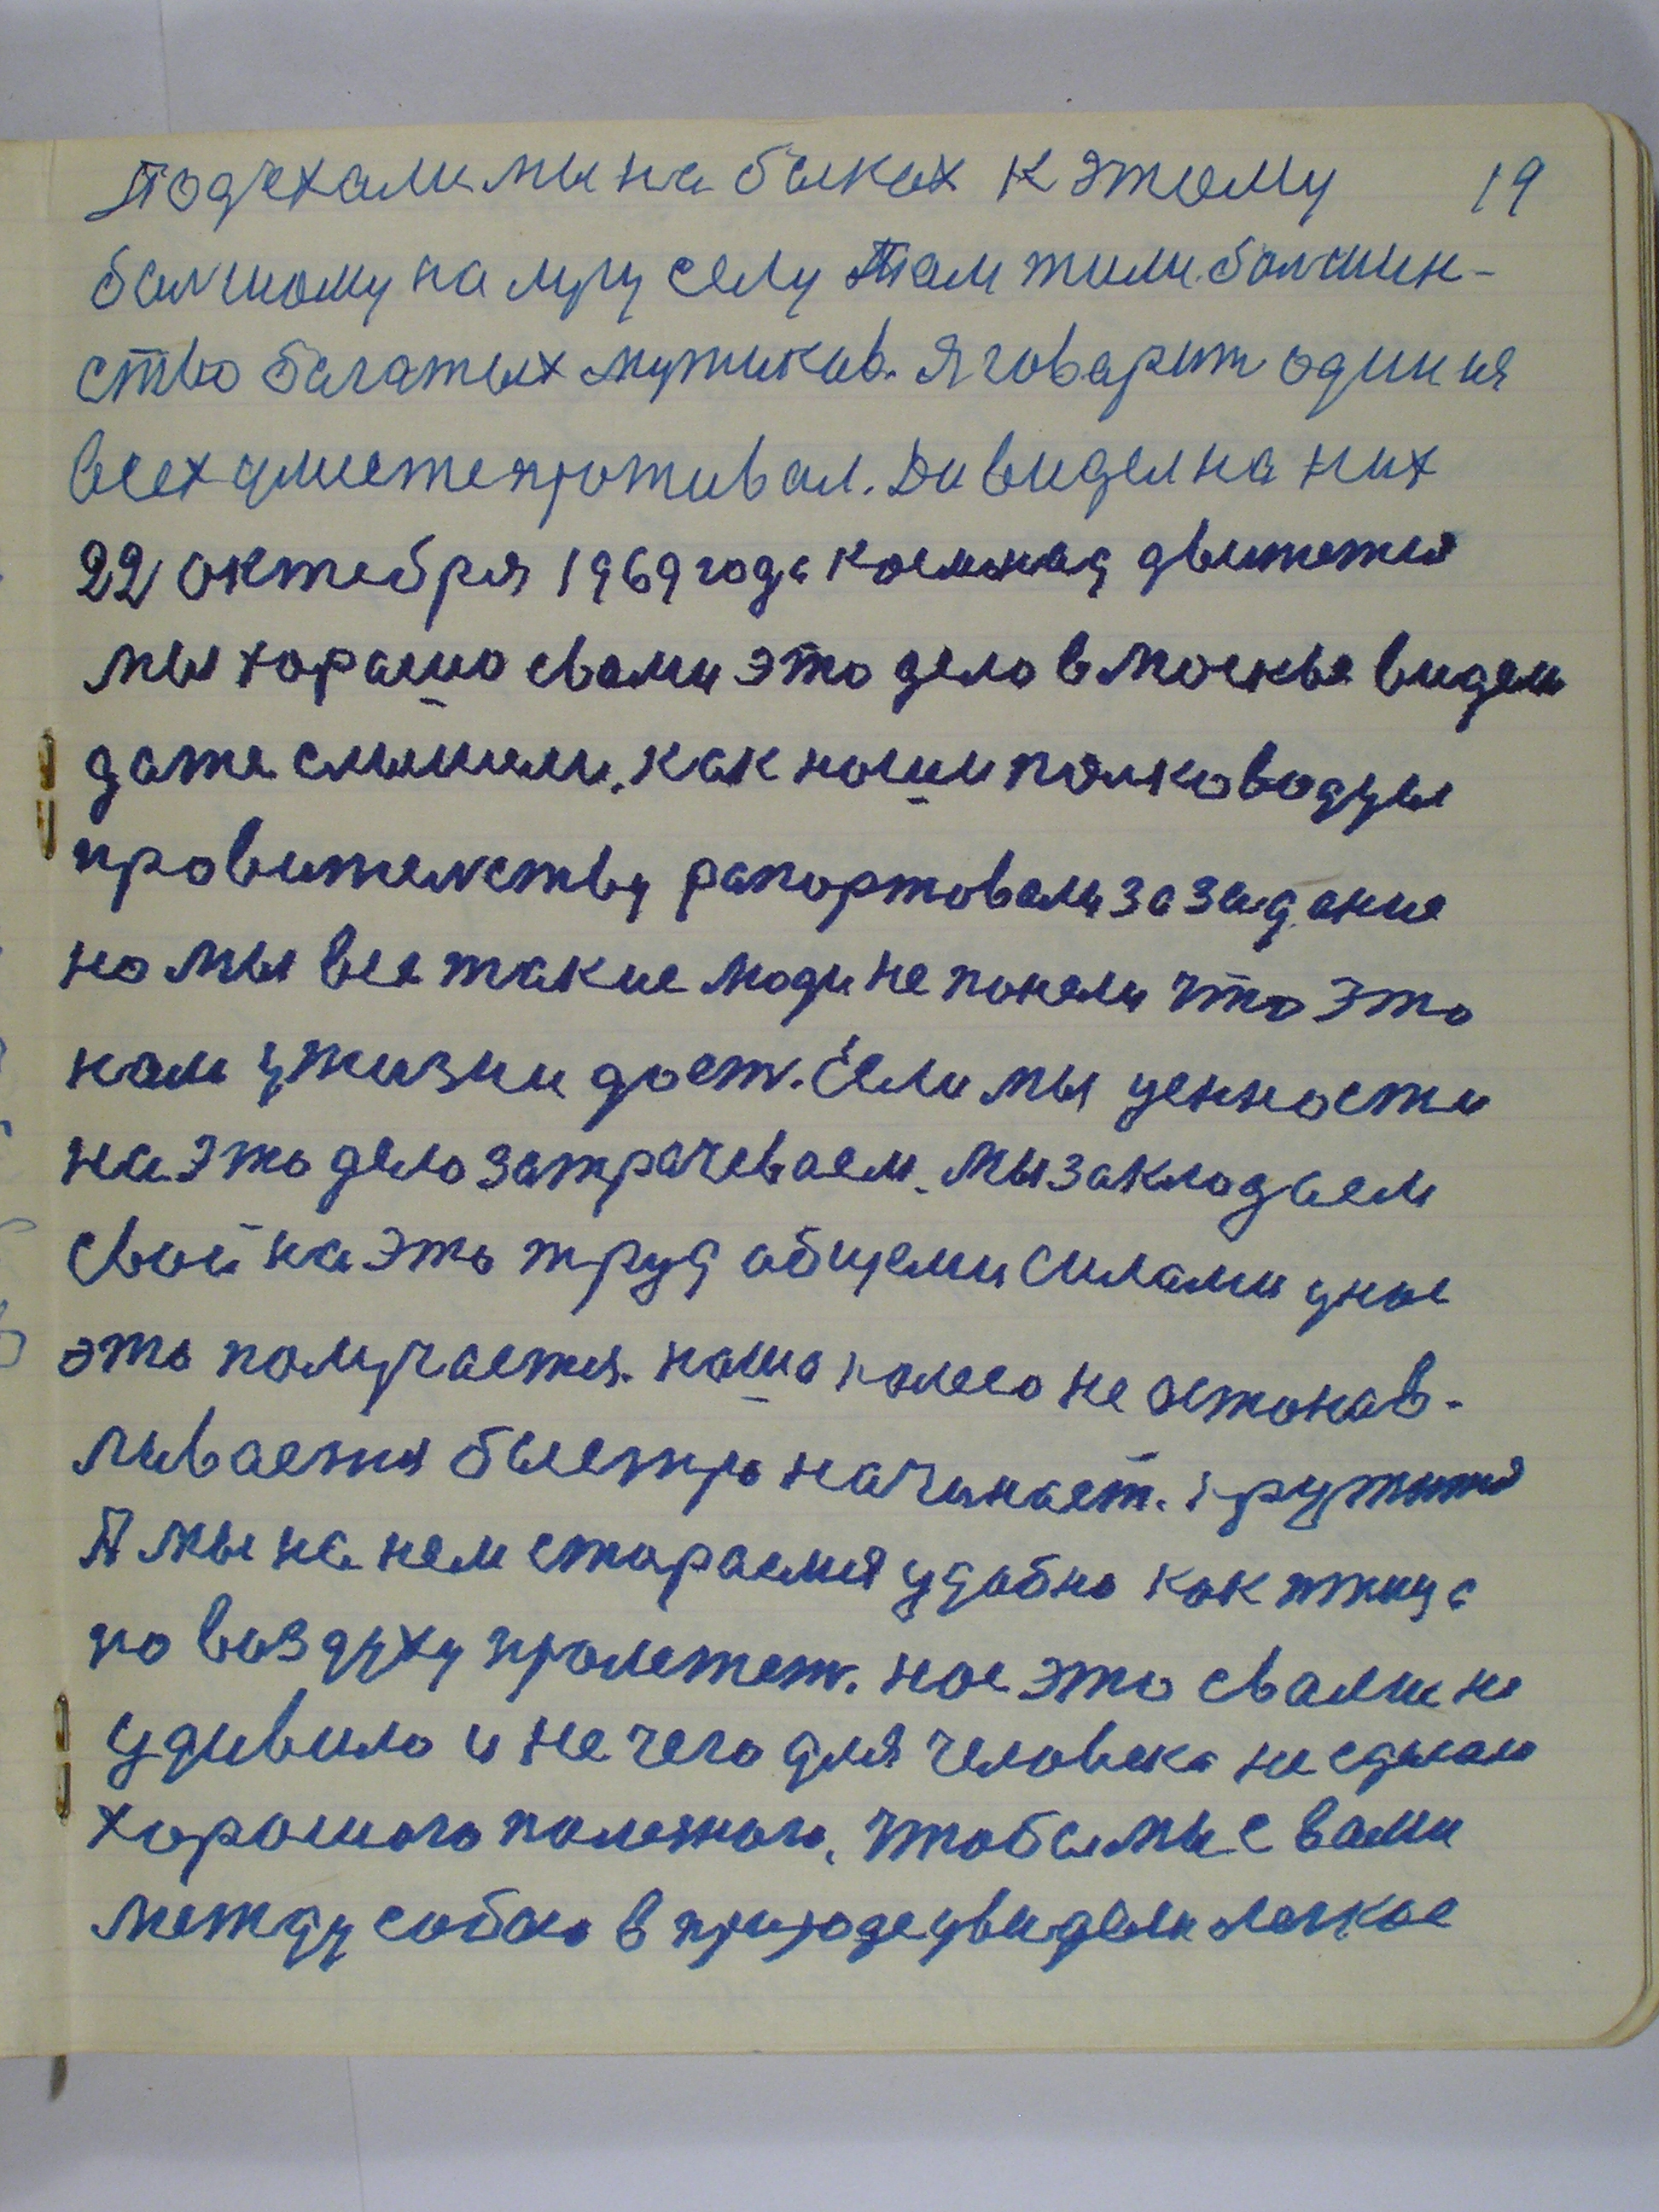 Подъехали мы на быках к этому 19
балшому на миру селу Там жили балшин-
ство багатых мужиков. Я говарит один ия
всех умистепротивал. Да виделна них
22 октебря 1969 года комонад движется
мы хорашо свами это дело в москве видели
даже слышели, как наши полководцы
провителству рапортовали за задание
но мы все такие люди не понели что это
нам ужизни даст. Если мы ценности
на это дело затрачеваем. мы закладаем
свой на это труд общеми силами унас
это получается. наша колесо не астонав-
ливается быстро начинает. кружится
А мы на нем стораемся удобно как птица
по воздуху пролетет. нас это свами не
удивило и не чего для человека не сделали
хорошего полезного, чтобы мы с вами
между собою в природе увидели легкое